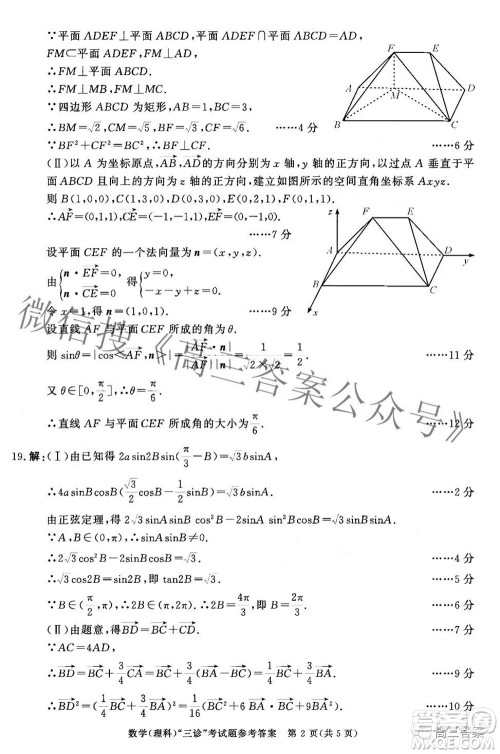 ∵平面 ADEF⊥平面 ABCD,平面 ADEF∩平面 ABCD=AD,
FM⊂平面 ADEF,FM⊥AD,
∴FM⊥平面 ABCD.
∴FM⊥MB,FM⊥MC.
∵四边形 ABCD 为矩形,AB=1,BC=3,
∴BM=√2,CM=√5,BF=√3,CF=√6. ……4 分
∵BF²+CF²=BC²,∴BF⊥CF. ……6 分
(Ⅱ)以 A 为坐标原点,AB→,AD→的方向分别为 x 轴,y 轴的正方向,以过点 A 垂直于平
面 ABCD 且向上的方向为 z 轴的正方向,建立如图所示的空间直角坐标系 Axyz.
则 B(1,0,0),C(1,3,0),D(0,3,0),E(0,2,1),F(0,1,1).
∴AF→=(0,1,1),EF→=(0,-1,0),CE→=(-1,-1,1).
……7 分
设平面 CEF 的一个法向量为 n=(x,y,z).
由{n·EF→=0, n·CE→=0, 得{y=0, -x-y+z=0.
令 x=1,得 n=(1,0,1). ……9 分
设直线 AF 与平面 CEF 所成的角为 θ.
则 sinθ=|cos<AF→,n>|=|AF→·n|/|AF→||n|=1×1/(√2×√2)=1/2. ……11 分
又 θ∈[0,π/2],∴θ=π/6.
∴直线 AF 与平面 CEF 所成角的大小为 π/6. ……12 分
19.解:(Ⅰ)由已知得 2asin2Bsin(π/3-B)=√3bsinA,
∴4asinBcosB(√3/2cosB-1/2sinB)=√3bsinA. ……2 分
由正弦定理,得 2√3cos²B-2sinBcosB=√3.
∵A,B∈(0,π),∴sinA≠0,sinB≠0.
∴2√3cos²B-2sinBcosB=√3. ……4 分
∴√3cos2B=sin2B,即 tan2B=√3. ……5 分
∵B∈(π/2,π),∴2B∈(π,2π).∴2B=4π/3,即B=2π/3. ……6 分
(Ⅱ)由题意,得BD→=BC→+CD→. ……7 分
∵AC=4AD,
∴BD→=BC→+3/4CA→=BC→+3/4(BA→-BC→)=1/4BC→+3/4BA→. ……9 分
∴BD→²=(1/4BC→+3/4BA→)²=1/16BC→²+9/16BA→²+3/8BC→·BA→. ……10 分
数学(理科)“三诊”考试题参考答案 第 2 页(共 5 页)
F E
A M D
B C
z F E
A D y
B C
x
微信搜《高三答案公众号》
高三答案